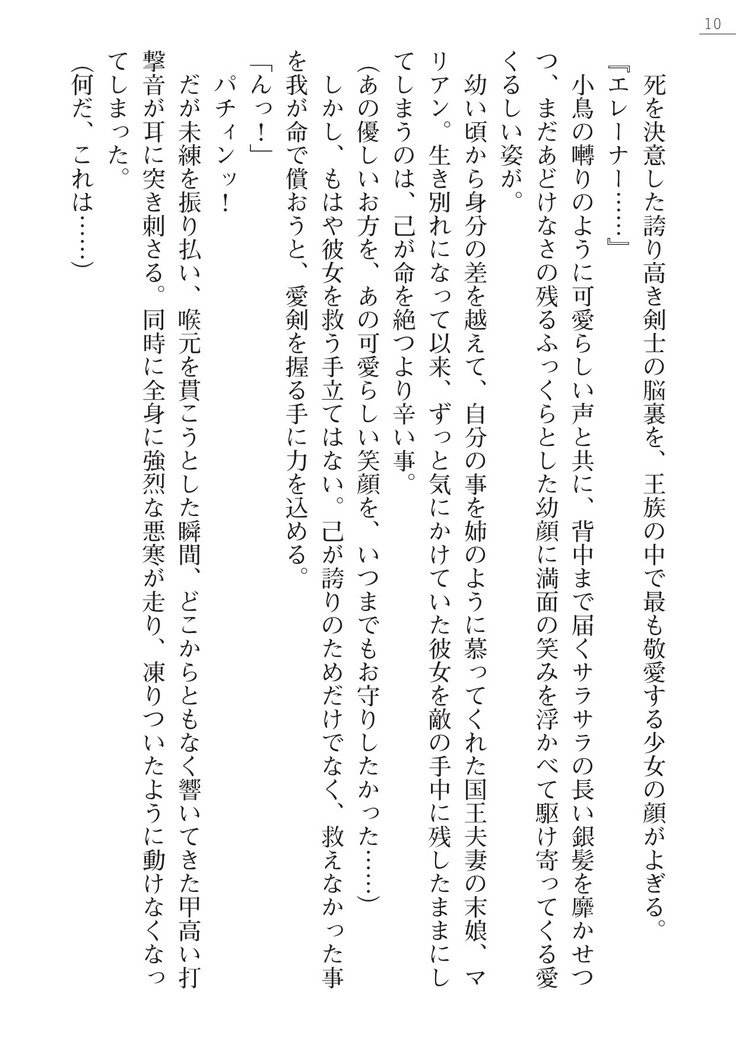 10
死を決意した誇り高き剣士の脳裏を、王族の中で最も敬愛する少女の顔がよぎる。
『エレーナー……』
小鳥の囀りのように可愛らしい声と共に、背中まで届くサラサラの長い銀髪を靡かせつ
つ、まだあどけなさの残るふっくらとした幼顔に満面の笑みを浮かべて駆け寄ってくる愛
くるしい姿が。
幼い頃から身分の差を越えて、自分の事を姉のように慕ってくれた国王夫妻の末娘、マ
リアン。生き別れになって以来、ずっと気にかけていた彼女を敵の手中に残したままにし
てしまうのは、己が命を絶つより辛い事。
(あの優しいお方を、あの可愛らしい笑顔を、いつまでもお守りしたかった……)
しかし、もはや彼女を救う手立てはない。己が誇りのためだけでなく、救えなかった事
を我が命で償おうと、愛剣を握る手に力を込める。
「んっ！」
パチィンッ！
だが未練を振り払い、喉元を貫こうとした瞬間、どこからともなく響いてきた甲高い打
撃音が耳に突き刺さる。同時に全身に強烈な悪寒が走り、凍りついたように動けなくなっ
てしまった。
(何だ、これは……)